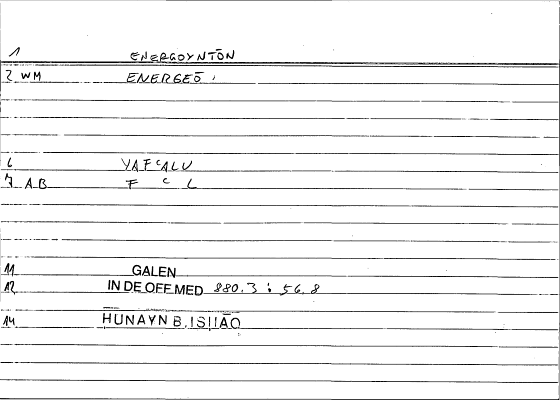 1 ENERGOYNTŌN
2 WM ENERGEŌ
6 YAFᶜALU
7 AB F ᶜ L
11 GALEN
12 IN DE OFF.MED 880.3 : 56.8
14 HUNAYN B.ISHAQ